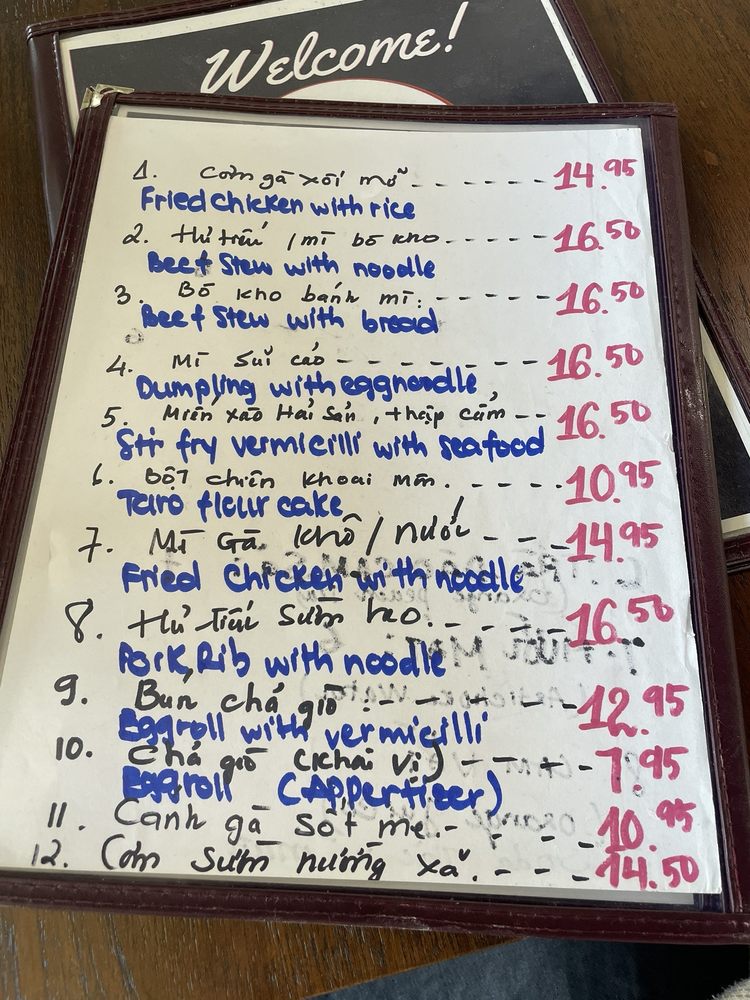 Welcome!
1. Cơm gà xối mỡ. - - - - - - 14.95
Fried chicken with rice
2. Hủ tiếu / mì bò kho - - - - - 16.50
Beef Stew with noodle
3. Bò kho bánh mì: - - - - - 16.50
Beef Stew with bread
4. Mì Suỉ cảo - - - - - - - 16.50
Dumpling with eggnoodle
5. Miến xào Hải Sản, thập cẩm - - 16.50
Stir fry vermicilli with seafood
6. Bột chiên khoai môn. - - - - - 10.95
Taro flour cake
7. Mì Gà khô / nước - - - 14.95
Fried Chicken with noodle
8. Hủ tiếu Sườn heo. - - - - - 16.50
Pork Rib with noodle
9. Bún chả giò. - - - - - - 12.95
Eggroll with vermicilli
10. Chả giò (khai vị) - - - - 7.95
Eggroll (Appertizer)
11. Cánh gà sốt me. - - - - 10.95
12. Cơm sườn nướng xả. - - - 14.50